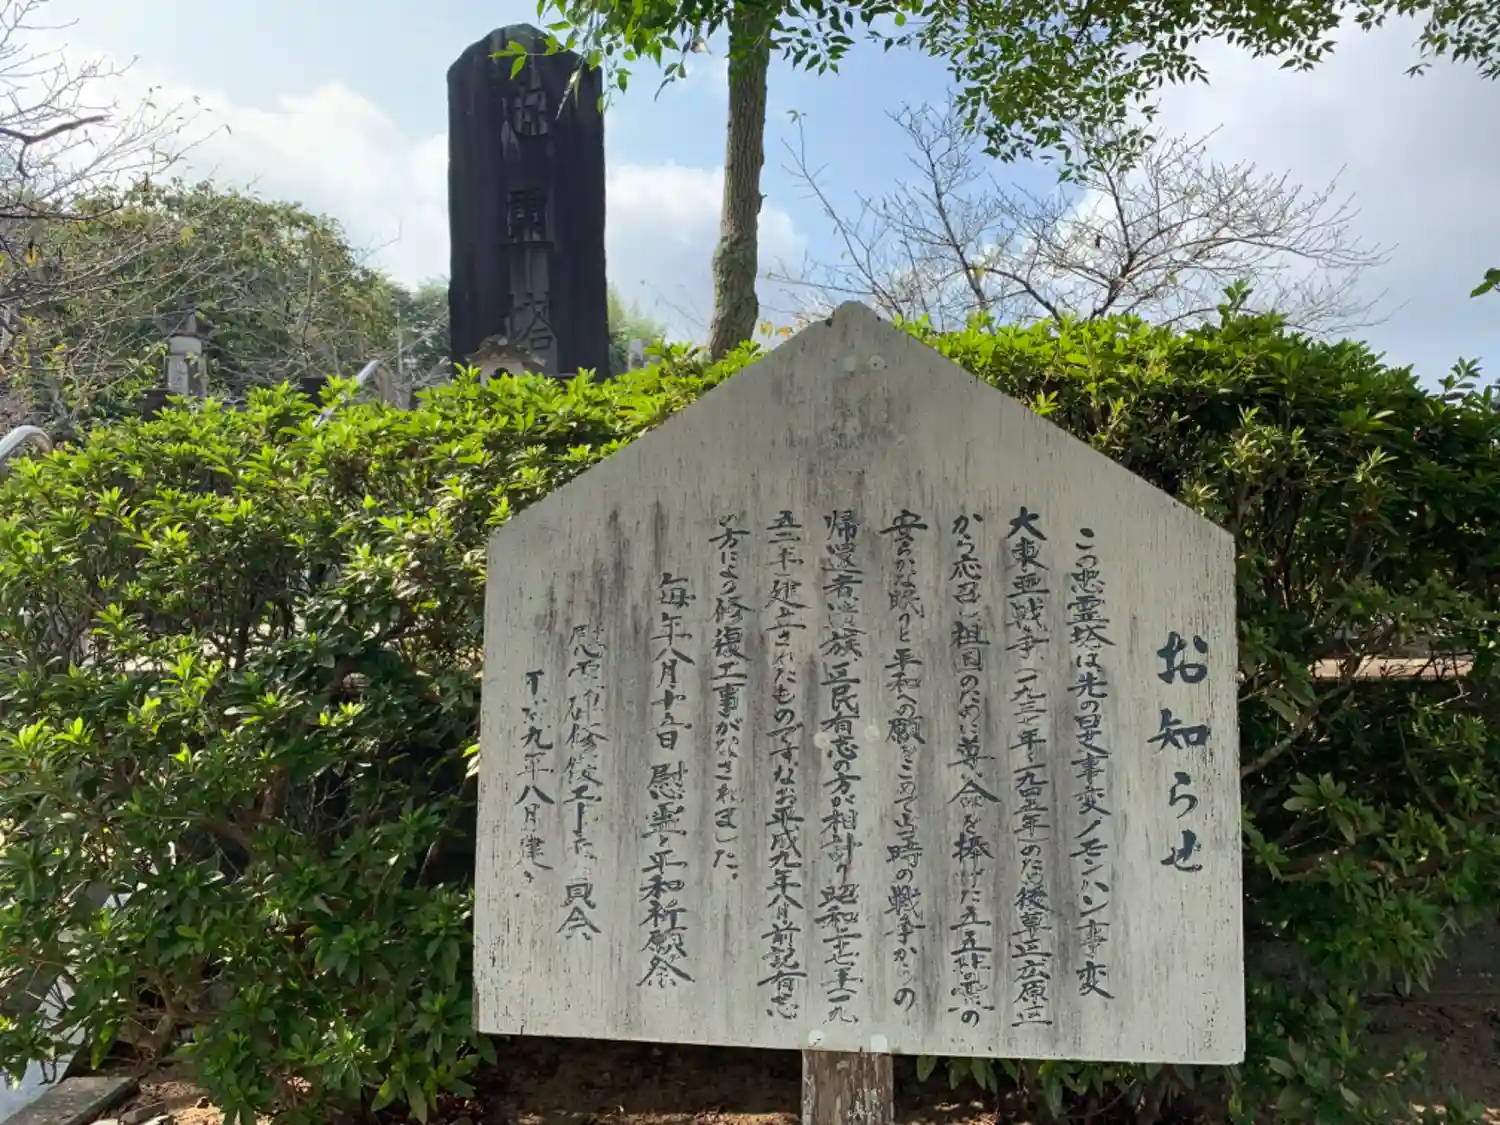 霊塔
お知らせ
この慰霊塔は先の日支事変ノモンハン事変
大東亜戦争(一九三七年~一九四五年)のため後草区広原区
から応召し祖国のために尊い命を捧げた五五柱の霊の
安らかな眠りと平和への願をこめて当時の戦争からの
帰還者遺族区民有志の方が相計り昭和二十七年一九
五二年建立されたものです。なお平成九年八月前記有志
の方により修復工事がなされました。
毎年八月十五日 慰霊と平和祈願祭
慰霊 修復工 員会
九年八月建